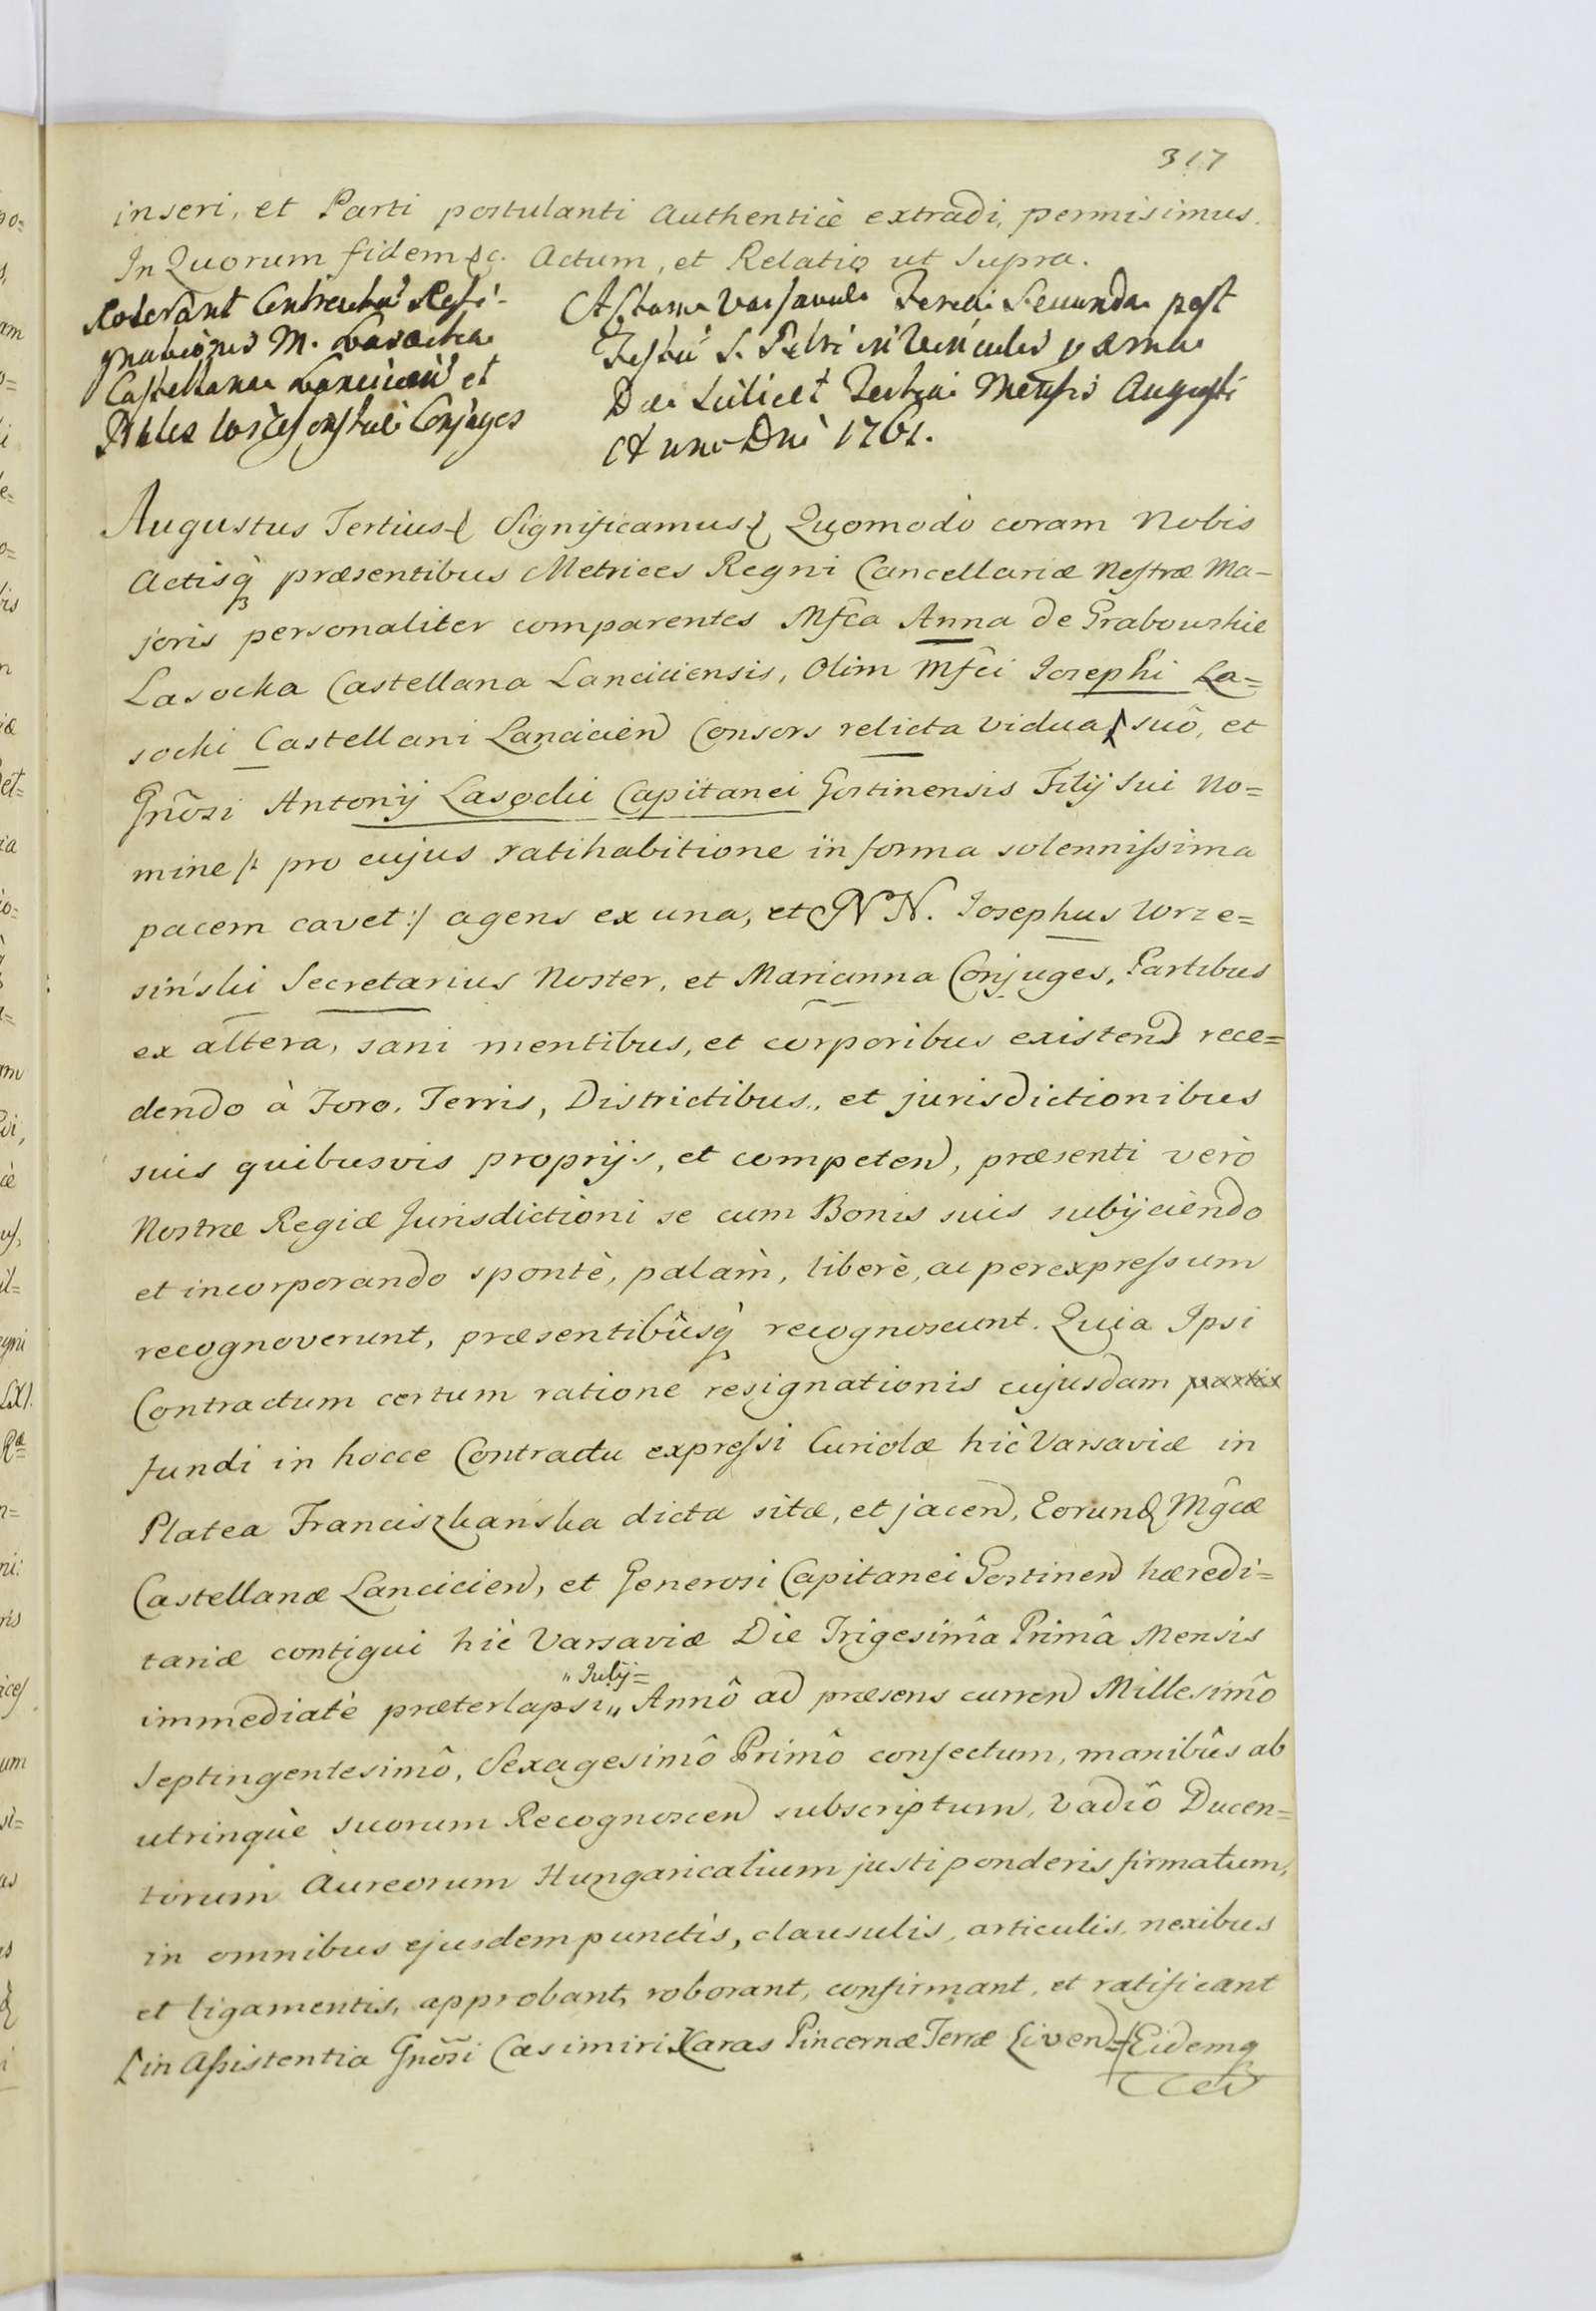 317
inseri, et Parti postulanti Authenticè extradi, permisimus.
In Quorum fidem &c. Actum, et Relatio ut Supra.
Roborant Contractũ Resi-
gnationis M. Lasocka
Castellana Lancicieñ et
Nobiles Wrzesinskie Conjuges
Actum Varsaviæ Feria Secunda post
Festũ S. Petri in Vinculis proxima
Die Scilicet Tertia Mensis Augusti
Anno Dni 1761.
Augustus Tertius &c Significamus &c Quomodo coram Nobis
Actisq̀ præsentibus Metrices Regni Cancellariæ Nostræ Ma-
joris personaliter comparentes Mfca Anna de Grabowskie
Lasocka Castellana Lanciciensis, Olim Mfci Josephi La=
socki Castellani Lancicien Consors relicta Vidua [ suô, et
Gnõsi Antonij Lasocki Capitanei Gostinensis Filij Sui No=
mine /: pro cujus ratihabitione in forma solennissima
pacem cavet :/ agens ex una, et GNN. Josephus Wrze=
siński Secretarius Noster, et Marianna Conjuges, Partibus
ex altera, sani mentibus, et corporibus existen rece=
dendo à Foro, Terris, Districtibus, et jurisdictionibus
suis quibusvis proprijs, et competen, præsenti verò
Nostræ Regiæ Jurisdictioni se cum Bonis suis subijciendo
et incorporando spontè, palàm, liberè, ac per expressum
recognoverunt, præsentibûsq̀ recognoscunt. Quia Ipsi
Contractum certum ratione resignationis cujusdam partis
fundi in hocce Contractu expressi Curiolæ hìc Varsaviæ in
Platea Franciszkańska dicta sitæ, et jacen, Eorund Mgcæ
Castellanæ Lancicien, et Generosi Capitanei Gostinen hæredi=
tariæ contigui hìc Varsaviæ Die Trigesimâ Primâ Mensis
" Julij =
immediatè præterlapsi " Annô ad præsens curren Millesimô
Septingentesimô, Sexagesimô Primô confectum, manibûs ab
utrinquè suorum Recognoscen subscriptum, Vadiô Ducen=
torum Aureorum Hungaricalium justi ponderis firmatum,
in omnibus ejusdem punctis, clausulis, articulis, nexibus
et ligamentis, approbant, roborant, confirmant, et ratificant
[in Assistentia Gnõsi Casimiri Karas Pincernæ Terræ Liven = Eidemq